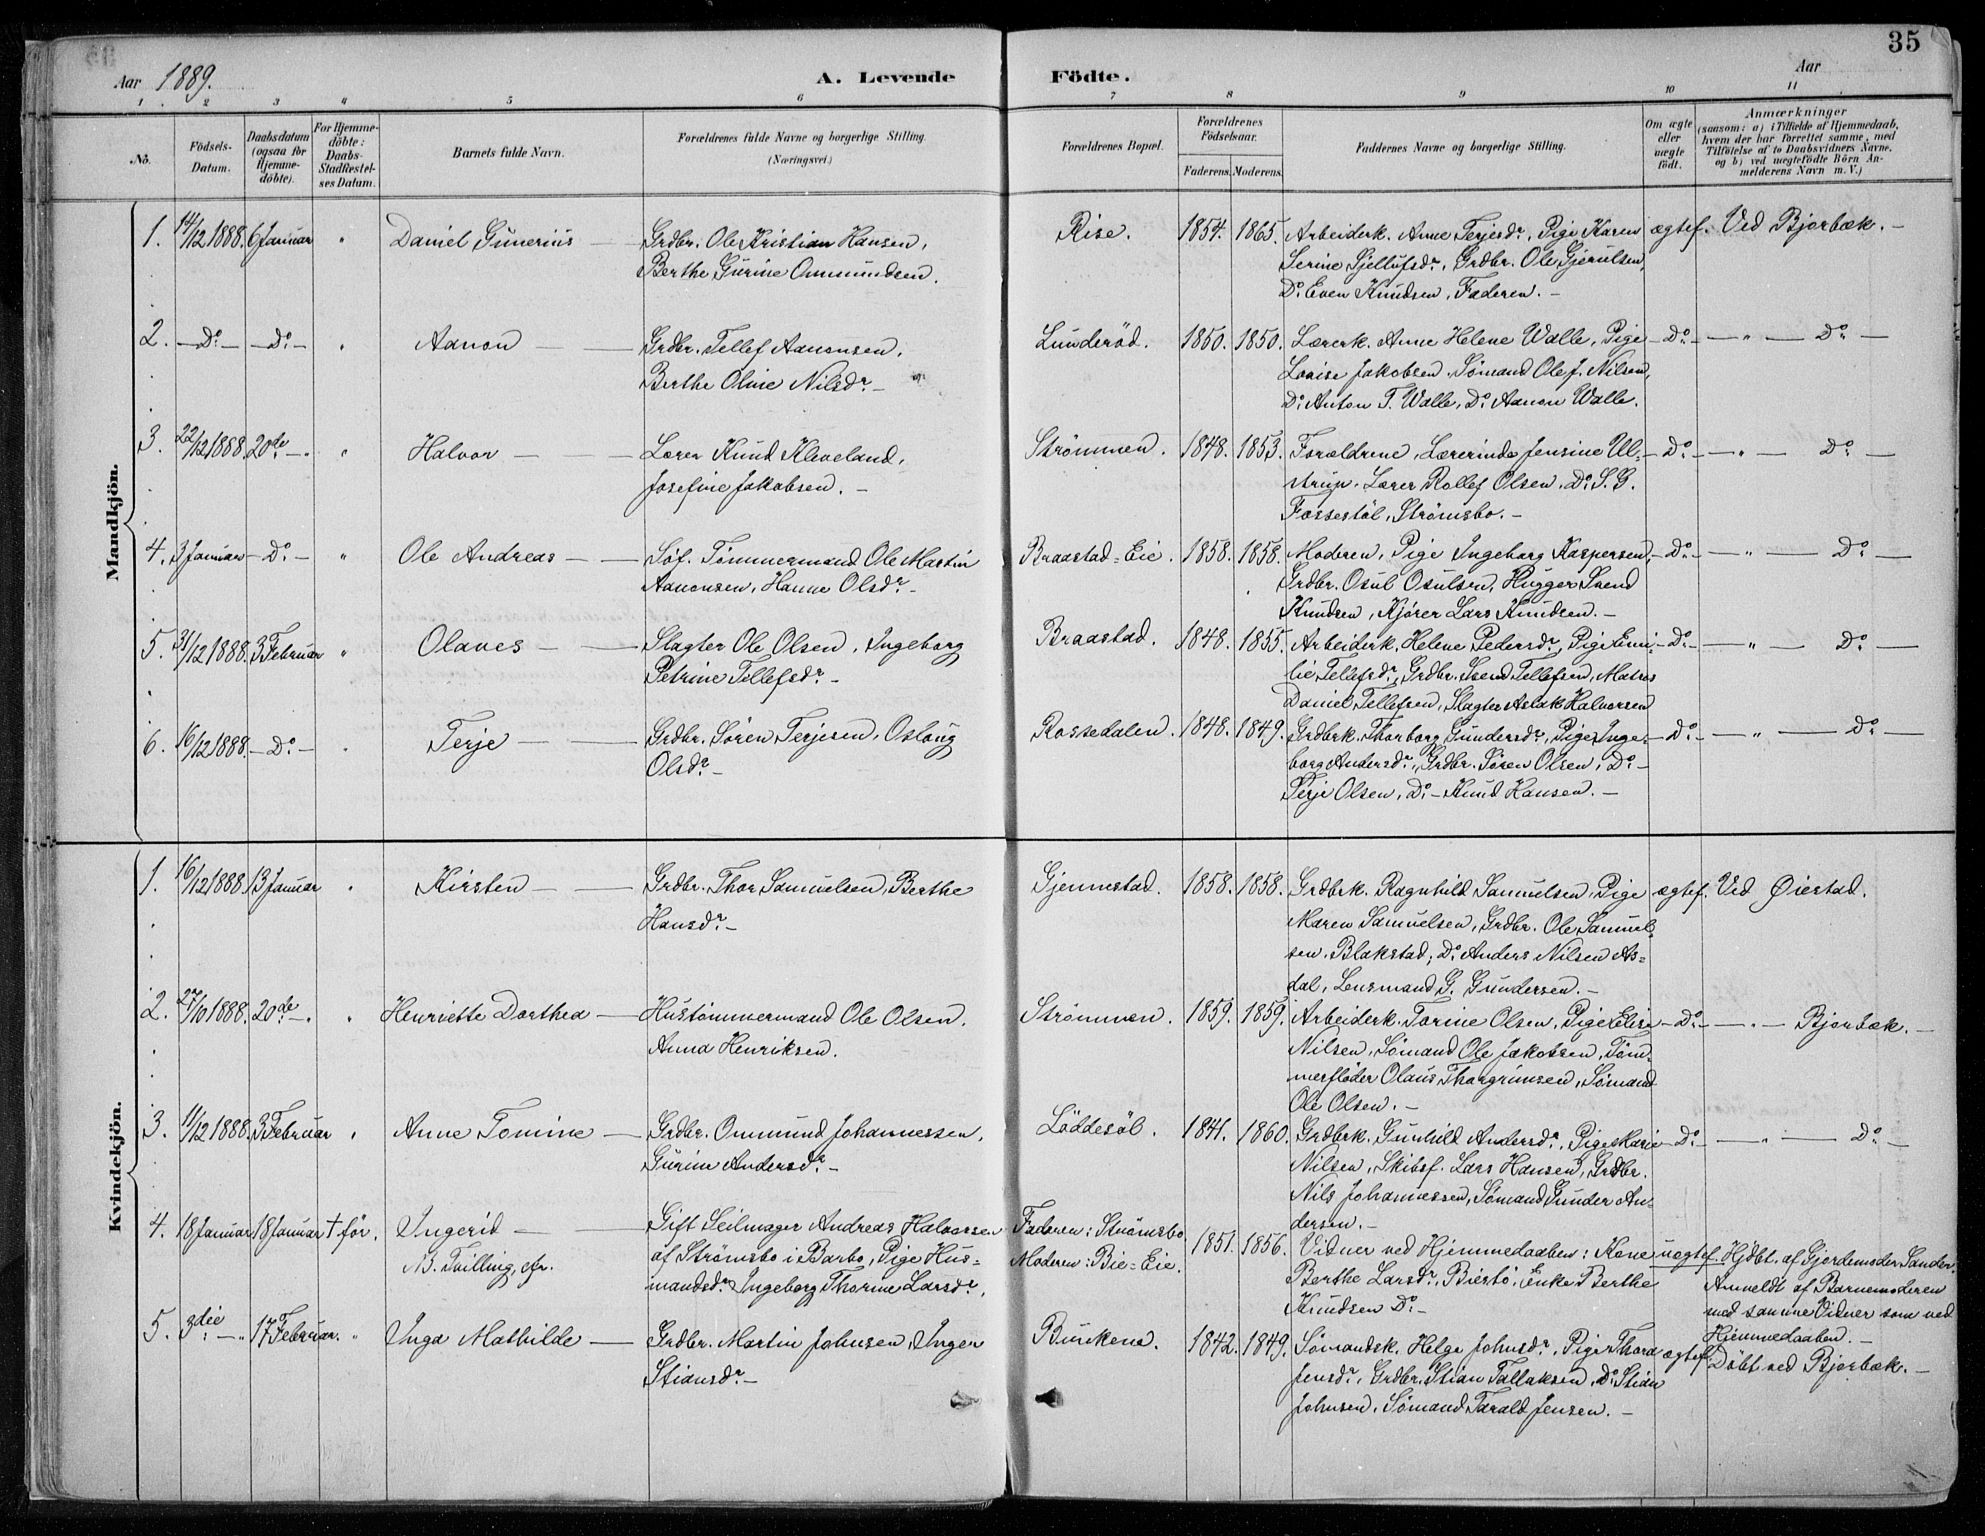 35
Aar 1889. A. Levende Födte. Aar
1 2 3 4 5 6 7 8 9 10 11
No.
Födsels-
Datum.
Daabsdatum
(ogsaa för
Hjemme-
döbte).
For Hjemme-
döbte:
Daabs-
Stadfæstel-
ses Datum.
Barnets fulde Navn.
Forældrenes fulde Navne og borgerlige Stilling.
(Næringsvei.)
Forældrenes Bopæl.
Forældrenes
Födselsaar.
Faderens. Moderens.
Faddernes Navne og borgerlige Stilling.
Om ægte
eller
uægte
födt.
Anmærkninger
(saasom: a) i Tilfælde af Hjemmedaab,
hvem der har forrettet samme, med
Tilföielse af to Daabsvidners Navne,
og b) ved uægtefödte Börn An-
melderens Navn m. V.)
Mandkjön.
1. 14/12 1888. 6 Januar " Daniel Gunerius — Grdbr. Ole Kristian Hansen,
Berthe Gurine Ommundsen.
Rise. 1854. 1865. Arbeiderk. Anne Terjesdr, Pige Karen
Serine Gjellufsdr, Grdbr. Ole Gjerulsen,
Do Even Knudsen, Faderen. —
ægtef. Ved Bjorbæk. —
2. — Do — — Do — " Aanon — Grdbr. Tellef Aanonsen,
Berthe Oline Nilsdr —
Lunderød. 1850. 1850. Lærerk. Anne Helene Walle, Pige
Lovise Jakobsen. Sømand Ole J. Nilsen,
Do Anton T. Walle, Do Aanon Walle.
— Do — — " — Do —
3. 22/12 1888. 20de — " Halvor — Lærer Knud Kleveland,
Josefine Jakobsen. —
Strømmen. 1848. 1853. Forældrene, Lærerinde Jensine Ul-
strup. Lærer Rollef Olsen, Do S. G.
Fossestøl, Strømsbo. —
— Do — — " — Do —
4. 3 Januar — Do — " Ole Andreas — Søf. Tømmermand Ole Martin
Aanonsen, Hanne Olsdr —
Braastad-Eie. 1858. 1858. Moderen, Pige Ingeborg Kaspersen,
Grdbr. Osul Osulsen, Hugger Svend
Knudsen, Kjører Lars Knudsen. —
— Do — — " — Do —
5. 31/12 1888. 3 Februar " Olaves — Slagter Ole Olsen, Ingeborg
Petrine Tellefsdr —
Braastad. 1848. 1855. Arbeiderk. Helene Pedersdr, Pige Emi-
lie Tellefsdr, Grdbr. Svend Tellefsen, Matros
Daniel Tellefsen, Slagter Aslak Halvorsen
— Do — — " — Do —
6. 16/12 1888. — Do — " Terje — Grdbr. Søren Terjesen, Oslaug
Olsdr —
Rossedalen. 1848. 1849. Grdbrk. Thorborg Gundersdr, Pige Inge-
borg Andersdr, Grdbr. Søren Olsen, Do —
Terje Olsen, Do — Knud Hansen. —
— Do — — " — Do —
Kvindekjön.
1. 16/12 1888. 13 Januar " Kirsten — Grdbr. Thor Samuelsen, Berthe
Hansdr —
Gjennestad. 1858. 1858. Grdbrk. Ragnhild Samuelsen, Pige
Maren Samuelsen, Grdbr. Ole Samuel-
sen. Blakstad, Do Anders Nilsen As-
dal, Lensmand G. Gundersen. —
ægtef. Ved Øiestad.
2. 27/10 1888. 20de — " Henriette Dorthea — Hustømmermand Ole Olsen.
Anna Henriksen.
Strømmen. 1859. 1859. Arbeiderk. Torine Olsen, Pige Elise
Nilsen, Sømand Ole Jakobsen, Tøm-
merfløder Olaus Thorgrimsen, Sømand
Ole Olsen. —
— Do — — " — Bjorbæk. —
3. 11/12 1888. 3 Februar " Anne Tomine — Grdbr. Ommund Johannessen,
Gurine Andersdr —
Løddesøl. 1841. 1860. Grdbrk. Gunhild Andersdr, Pige Marie
Nilsen, Skibsf. Lars Hansen, Grdbr.
Nils Johannessen, Sømand Gunder An-
dersen. —
— Do — — " — Do —
4. 18 Januar 18 Januar † før. Ingerid —
B. Tvilling, efr.
Gift Seilmager Andreas Halvorsen
af Strømsbo i Barbo, Pige Hus-
mandsdr Ingeborg Thorine Larsdr,
Faderen: Strømsbo
Moderen: Bie-Eie.
1851. 1856. Vidner ved Hjemmedaaben: Kone
Berthe Larsdr, Biestø, Enke Berthe
Knudsen Do —
uægtef. Hjdbt. af Gjordemoder Sander.
Anmeldt af Barnemoderen
med samme Vidner som ved
Hjemmedaaben. —
5. 3die — " 17 Februar. " Inga Mathilde — Grdbr. Martin Johnsen, Inger
Stiansdr —
Bunkene. 1842. 1849. Sømandsk. Helge Johnsdr, Pige Thora
Jensdr, Grdbr. Stian Tallaksen, Do Stian
Johnsen, Sømand Tarald Jensen. —
ægtef. Døbt ved Bjorbæk. —